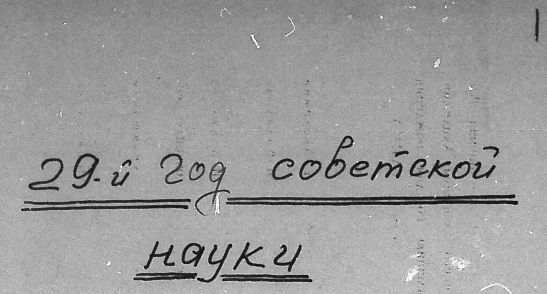 29-й год советской
науки